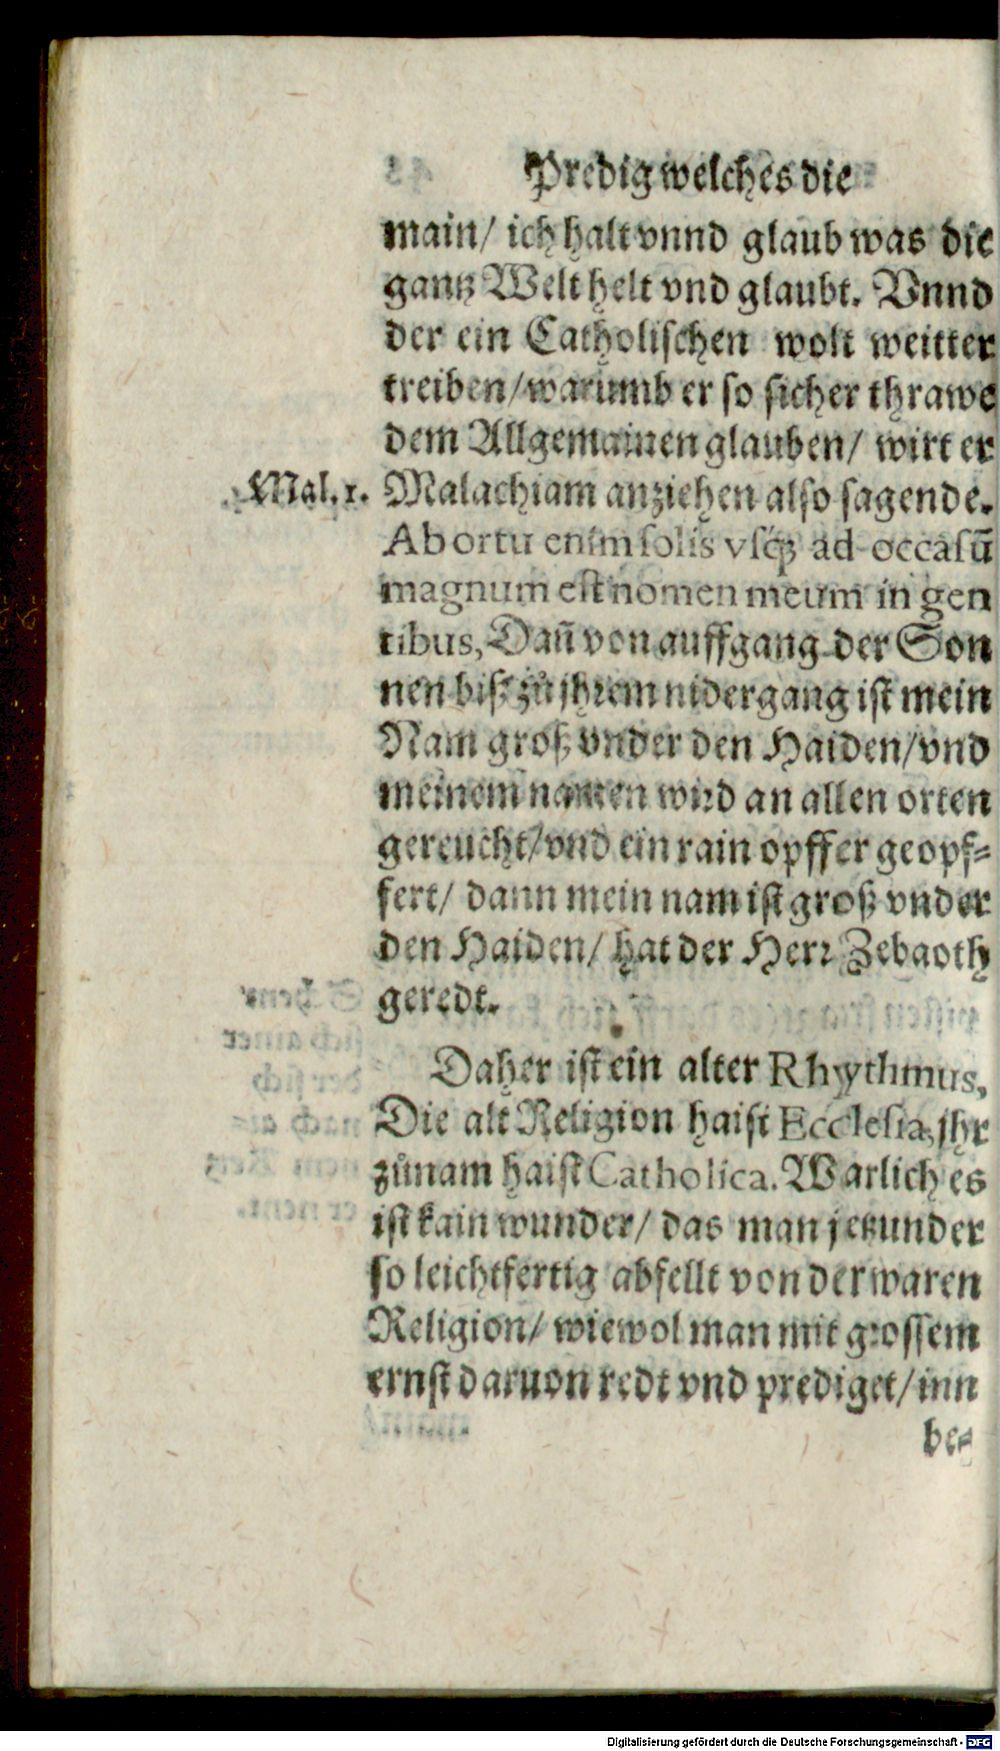 Predig welches die
main/ ich halt vnnd glaub was die
gantz Welt helt vnd glaubt. Vnnd
der ein Catholischen wolt weitter
treiben/ warumb er so sicher thrawe
dem Allgemainen glauben/ wirt er
Mal. 1. Malachiam anziehen also sagende.
Ab ortu enim solis vsq́; ad occasū
magnum est nomen meum in gen
tibus, Dañ von auffgang der Son
nen biß zů jhrem nidergang ist mein
Nam groß vnder den Haiden/ vnd
meinem namen wird an allen orten
gereucht/ vnd ein rain opffer geopf⸗
fert/ dann mein nam ist groß vnder
den Haiden/ hat der Herr Zebaoth
geredt.
Daher ist ein alter Rhythmus,
Die alt Religion haist Ecclesia, jhr
zůnam haist Catholica. Warlich es
ist kain wunder/ das man jetzunder
so leichtfertig abfellt von der waren
Religion/ wiewol man mit grossem
ernst daruon redt vnd prediget/ inn
be⸗
Digitalisierung gefördert durch die Deutsche Forschungsgemeinschaft - DFG